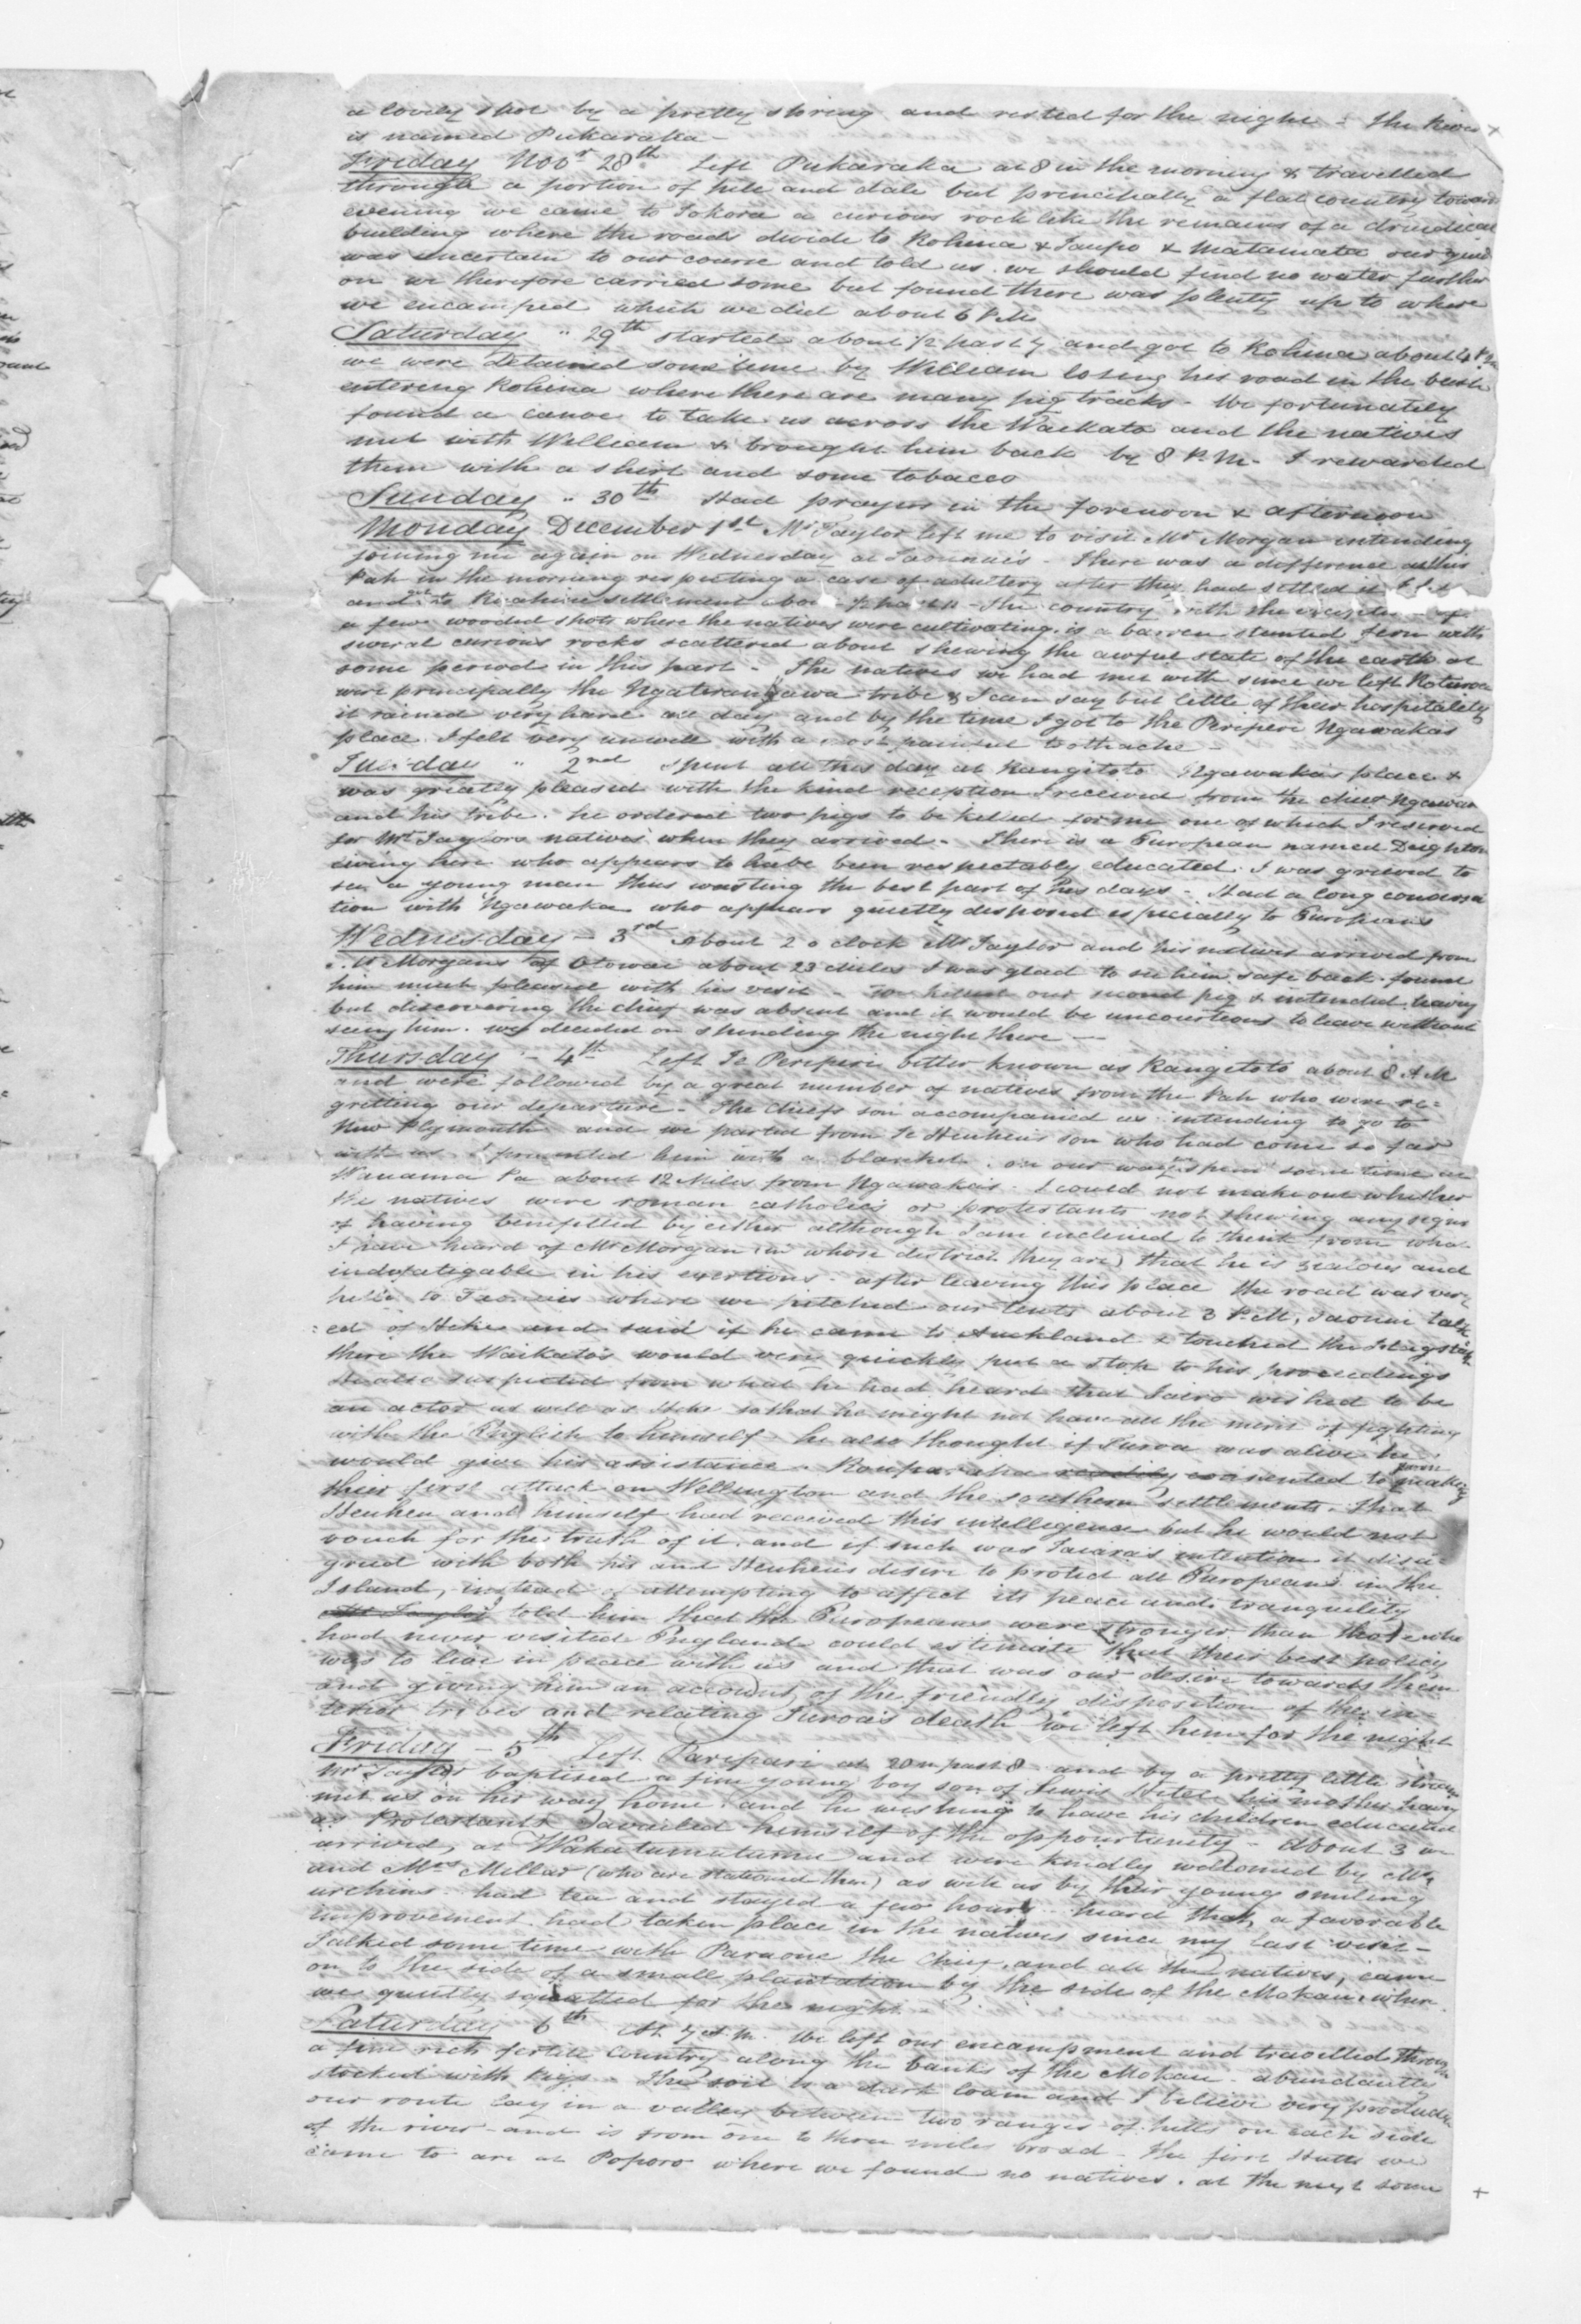 a lovely spot by a pretty spring and rested for the night - the River
is named Pukaraka -
Friday Novr 28th Left Pukaraka at 8 in the morning & travelled
through a portion of hill and dale but principally a flat country towards
evening we came to Tokora a curious rock like the remains of a druidical
building where the roads divide to Rohena & Taupo & Matamata our guide
was uncertain to our course and told us we should find no water further
on we therefore carried some but found there was plenty up to where
we encamped which we did about 6 P.M.
Saturday " 29th Started about 1/2 past 7 and got to Rohena about 4 P.M.
we were detained sometime by William losing his road in the bush
entering Rohina where there are many pig tracks - We fortunately
found a canoe to take us across the Waikato and the natives
met with William & brought him back by 8 P.M. I rewarded
them with a shirt and some tobacco
Sunday " 30th Had prayers in the forenoon & afternoon
Monday December 1st Mr Taylor left me to visit Mr Morgan intending
joining me again on Wednesday at Taonui's - There was a difference at this
Pah in the morning respecting a case of adultery after they had settled it
and settlement about 1/2 past 11 - the country with the of
a few wooded spots where the natives were cultivating is a barren stunted fern with
several curious rocks scattered about shewing the awful state of the earth at
some period in this part - The natives we had met with since we left Roturoa
were principally the tribe & I can say but little of their hospitality
it rained very hard all day and by the time I got to the Peripere Ngawakas
place I felt very unwell with a most painful toothache -
Tuesday " 2nd Spent all this day at Rangitoto Ngawaka's place &
was greatly pleased with the kind reception I received from the chief Ngawaka
and his tribe. he ordered two pigs to be killed for me one of which I reserved
for Mr Taylors natives when they arrived - There is a European named Deighton
living here who appears to have been respectably educated. I was grieved to
see a young man thus wasting the best part of his days - Had a long conversa
tion with Ngawaka who appears quietly disposed especially to Europeans
Wednesday - 3rd About 2 o clock Mr Taylor and his natives arrived from
Mr Morgans of Otowai about 23 Miles I was glad to see him safe back. found
him much pleased with his visit - our second pig & intended leaving
but discovering the chief was absent and it would be uncourteous to leave without
seeing him. we decided on spending the night there -
Thursday - 4th Left Te Peripiri better known as Rangitoto about 8 A.M
and were followed by a great number of natives from the Pah who were re=
gretting our departure - The Chiefs son accompanied us intending to go to
New Plymouth and we parted from Te Heuheu's son who had come so far
with us. I presented him with a blanket. on our way we spent some time at
Wauama Pa about 12 Miles from Ngawaka's. I could not make out whether
the natives were roman catholics or protestants not shewing any signs
of having benefitted by either although I am inclined to think from what
I have heard of Mr Morgan (in whose district they are) that he is zealous and
indefatigable in his exertions - after leaving this place the road was very
hilly to Taonuis where we pitched our tents about 3 P.M. Taonui talk
:ed of Heke and said if he came to Auckland & touched the Flagstaff
there the Waikato's would very quickly put a stop to his proceedings
He also suspected from what he had heard that wished to be
an actor as well as Heke so that he might not have all the merit of fighting
with the English to himself - he also thought if Turoa was alive he
would give his assistance. Rauparaha readily consented to making
their first attack on Wellington and the southern settlements. that
Heuheu and himself had received this intelligence but he would not
vouch for the truth of it. and if such was intention it disa=
greed with both his and Heuheu's desire to protect all Europeans in the
Island, instead of attempting to affect its peace and tranquility
Mr Taylor told him that the Europeans were stronger than those who
had never visited England could estimate that their best policy
was to live in peace with us and that was our desire towards them
and giving him an account of the friendly disposition of the in=
terior tribes and relating Turoa's death we left him for the night
Friday - 5th Left Paripari at 20 m past 8 and by a pretty little stream
Mr Taylor baptised a fine young boy son of Lewis his mother having
met us on his way home. and he wishing to have his children educated
as Protestants availed himself of the opportunity - about 3 we
arrived at Wakatumutumu and were kindly welcomed by Mr
and Mrs Millar (who are stationed there) as well as by their young smiling
urchins. had tea and stayed a few hours - heard that a favorable
improvement had taken place in the natives since my last visit -
Talked some time with Paraone the Chief and all the natives, came
on to the side of a small plantation by the side of the Mokau. where
we quietly squatted for the night
Saturday 6th At 7 A.M. We left our encampment and travelled through
a fine rich fertile country along the banks of the Mokau - abundantly
stocked with pigs - The soil is a dark loam and I believe very productive
our route lay in a valley between two ranges of hills on each side
of the river - and is from one to three miles broad - the first Hutts we
came to are at Poporo where we found no natives. at the next some